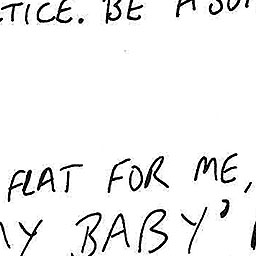 TICE. BE A
FLAT FOR ME,
MY BABY'